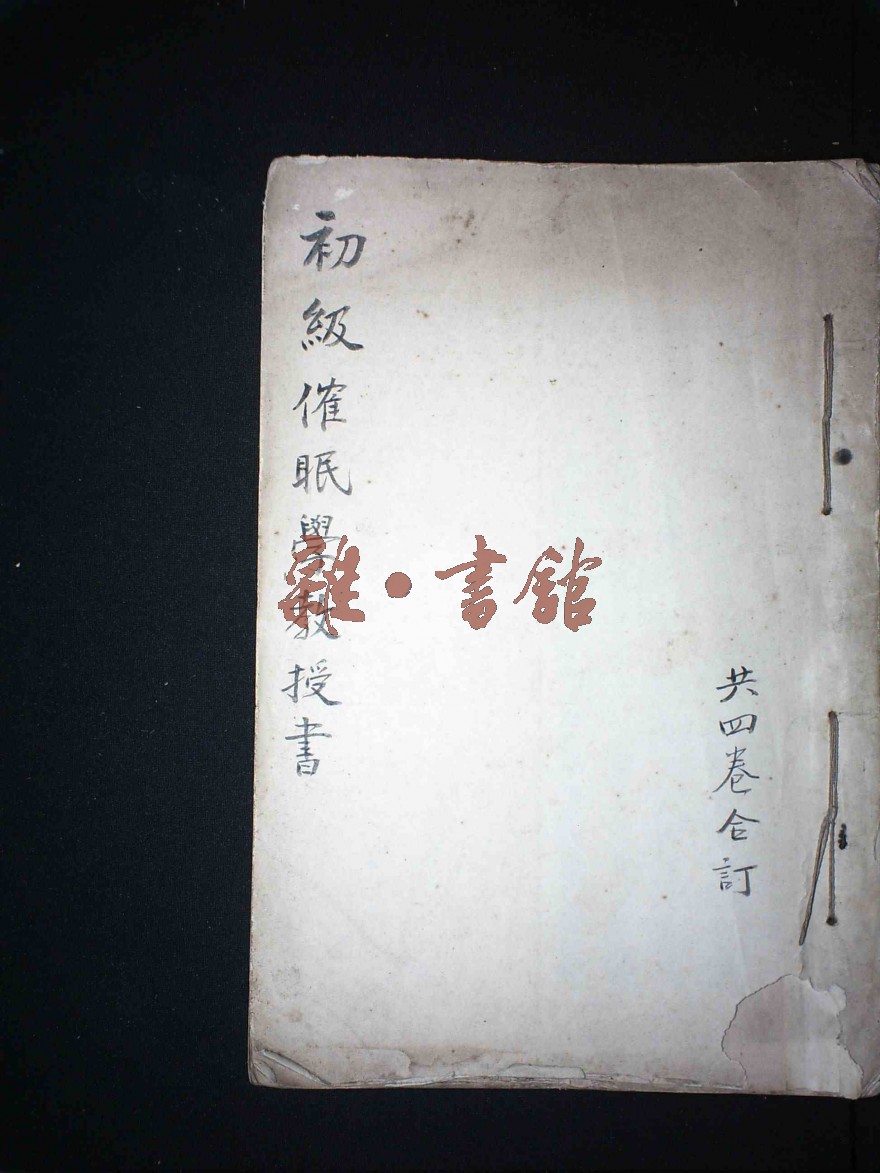 初級催眠學教授書
共四卷合訂
雜·書館